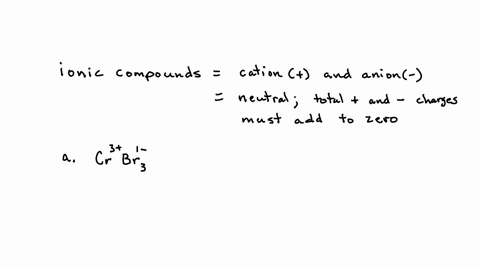 ionic compounds = cation (+) and anion (-)
= neutral; total + and - charges
must add to zero
a. Cr³⁺Br₃¹⁻